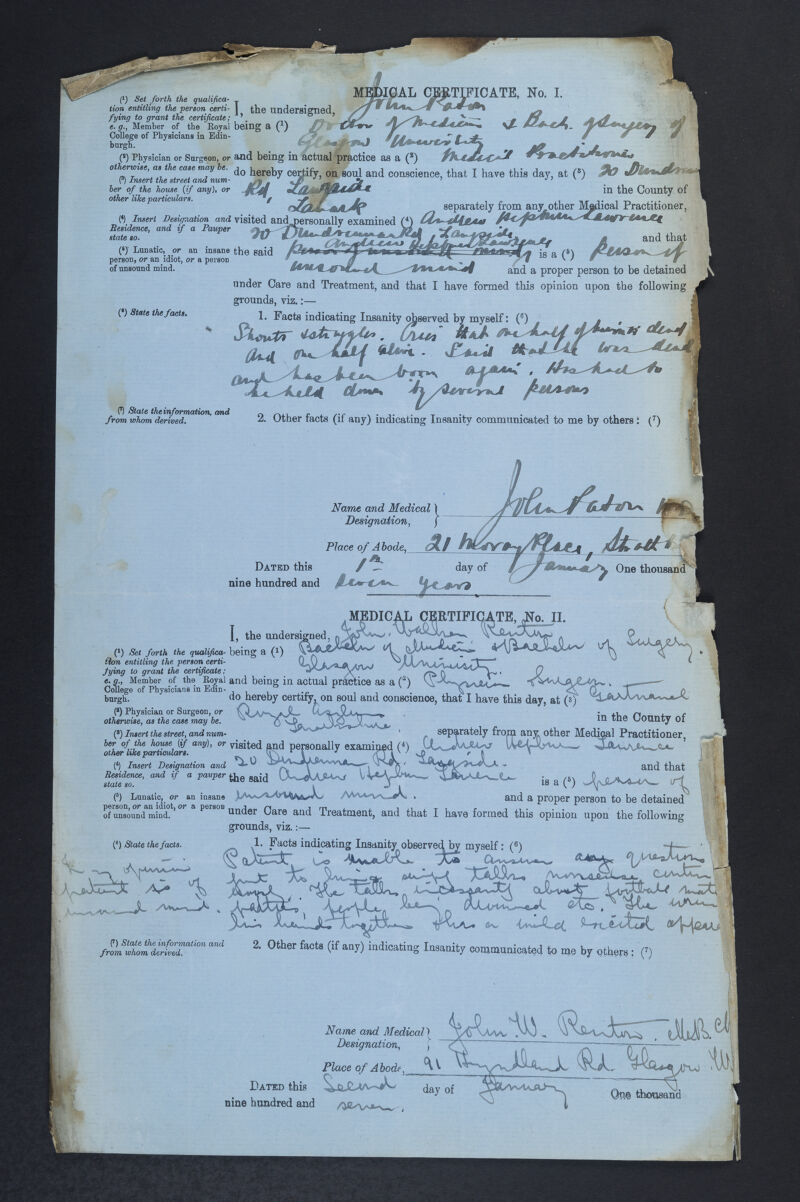 MEDICAL CERTIFICATE, No. I.
(¹) Set forth the qualifica-
tion entitling the person certi-
fying to grant the certificate;
e. g., Member of the Royal
College of Physicians in Edin-
burgh.
I, the undersigned, John Paton
being a (¹) Doctor of Medicine & Bach. of Surgery of
Glasgow University
(²) Physician or Surgeon, or
otherwise, as the case may be.
and being in actual practice as a (²) Medical Practitioner
do hereby certify, on soul and conscience, that I have this day, at (³) 20 Dundrennan
(³) Insert the street and num-
ber of the house (if any), or
other like particulars.
Rd, Langside in the County of
Lanark separately from any other Medical Practitioner,
(⁴) Insert Designation and
Residence, and if a Pauper
state so.
visited and personally examined (⁴) Andrew Hepburn Lawrence
20 Dundrennan Rd, Langside and that
(⁵) Lunatic, or an insane
person, or an idiot, or a person
of unsound mind.
Andrew Hepburn Lawrence
the said Person of unsound mind is a (⁵) Person of
unsound mind and a proper person to be detained
under Care and Treatment, and that I have formed this opinion upon the following
grounds, viz. :—
(⁶) State the facts.
1. Facts indicating Insanity observed by myself: (⁶)
Shouts & struggles. Cries that one half of him is dead
and one half alive. Said that he was dead
and has been born again. Has had to
be held down by several persons
(⁷) State the information, and
from whom derived.
2. Other facts (if any) indicating Insanity communicated to me by others: (⁷)
Name and Medical
Designation, John Paton
Place of Abode, 21 Moray Place,
DATED this 1st day of January One thousand
nine hundred and seven years
MEDICAL CERTIFICATE, No. II.
I, the undersigned, John Waltham Renton
(¹) Set forth the qualifica-
tion entitling the person certi-
fying to grant the certificate:
e. g., Member of the Royal
College of Physicians in Edin-
burgh.
being a (¹) Bachelor of Medicine & Bachelor of Surgery.
Glasgow University.
and being in actual practice as a (²) Physician Surgeon.
do hereby certify, on soul and conscience, that I have this day, at (³) Gartnavel
(²) Physician or Surgeon, or
otherwise, as the case may be.
Royal Asylum in the County of
(³) Insert the street, and num-
ber of the house (if any), or
other like particulars.
Lanarkshire separately from any other Medical Practitioner,
visited and personally examined (⁴) Andrew Hepburn Lawrence
(⁴) Insert Designation and
Residence, and if a pauper
state so.
20 Dundrennan Rd. Langside. and that
the said Andrew Hepburn Lawrence is a (⁵) person of
(⁵) Lunatic, or an insane
person, or an idiot, or a person
of unsound mind.
unsound mind. and a proper person to be detained
under Care and Treatment, and that I have formed this opinion upon the following
grounds, viz. :—
(⁶) State the facts.
1. Facts indicating Insanity observed by myself: (⁶)
In my opinion
patient is of
unsound mind.
Patient is unable to answer any questions
put to him & simply talks nonsense
He talks incessantly about football
parties, people being drowned etc. He
his hands together & has a wild excited
(⁷) State the information and
from whom derived.
2. Other facts (if any) indicating Insanity communicated to me by others: (⁷)
Name and Medical
Designation, John W. Renton. M.B.
Place of Abode, 91 Hyndland Rd. Glasgow. W.
DATED this Second day of January One thousand
nine hundred and seven.